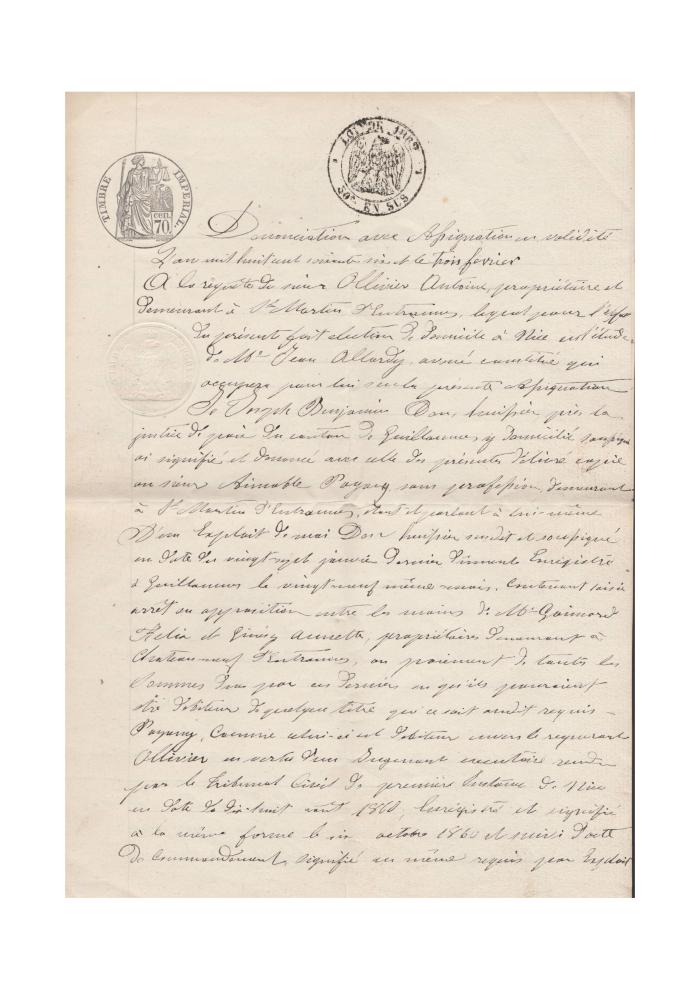 TIMBRE IMPERIAL
70 cen.
LOI DE 1862
50c EN SUS
Dénonciation avec assignation en validité
L'an mil huit cent soixante six et le trois fevrier
A la requête du sieur Ollivier Antoine, propriétaire et
demeurant à St Martin d'Entraunes, lequel pour l'effet
du présente fait election de domicile à Nice en l'étude
de Me Jean Allardy, avoué constitué qui
occupera pour lui sur la présente assignation
Je Joseph Benjamin huissier près la
justice de paix du canton de Guillaumes y domicilié soussigné
ai signifié et dénoncé avec celle des présentes délivré copie
au sieur Aimable Payany sans profession, demeurant
à St Martin d'Entraunes, étant et parlant à lui-même
D'un Exploit de moi huissier susdit et soussigné
en date du vingt sept janvier dernier dûment Enregistré
à Guillaumes le vingt neuf même mois, contenant saisie
arrêt ou opposition entre les mains de
et Annette, propriétaires demeurant à
Chateauneuf d'Entraunes, en paiement de toutes les
sommes dues par ces derniers ou qu'ils pourraient
être débiteurs de quelque titre que ce soit audit requis
Payany, Comme celui-ci est débiteur envers le requerant
Ollivier en vertu d'un Jugement executoire rendu
par le Tribunal Civil de première Instance de Nice
en date du dix-huit août Enregistré et signifié
à la même forme le six octobre et suivi d'acte
de Commandement, signifié au même requis par Exploit